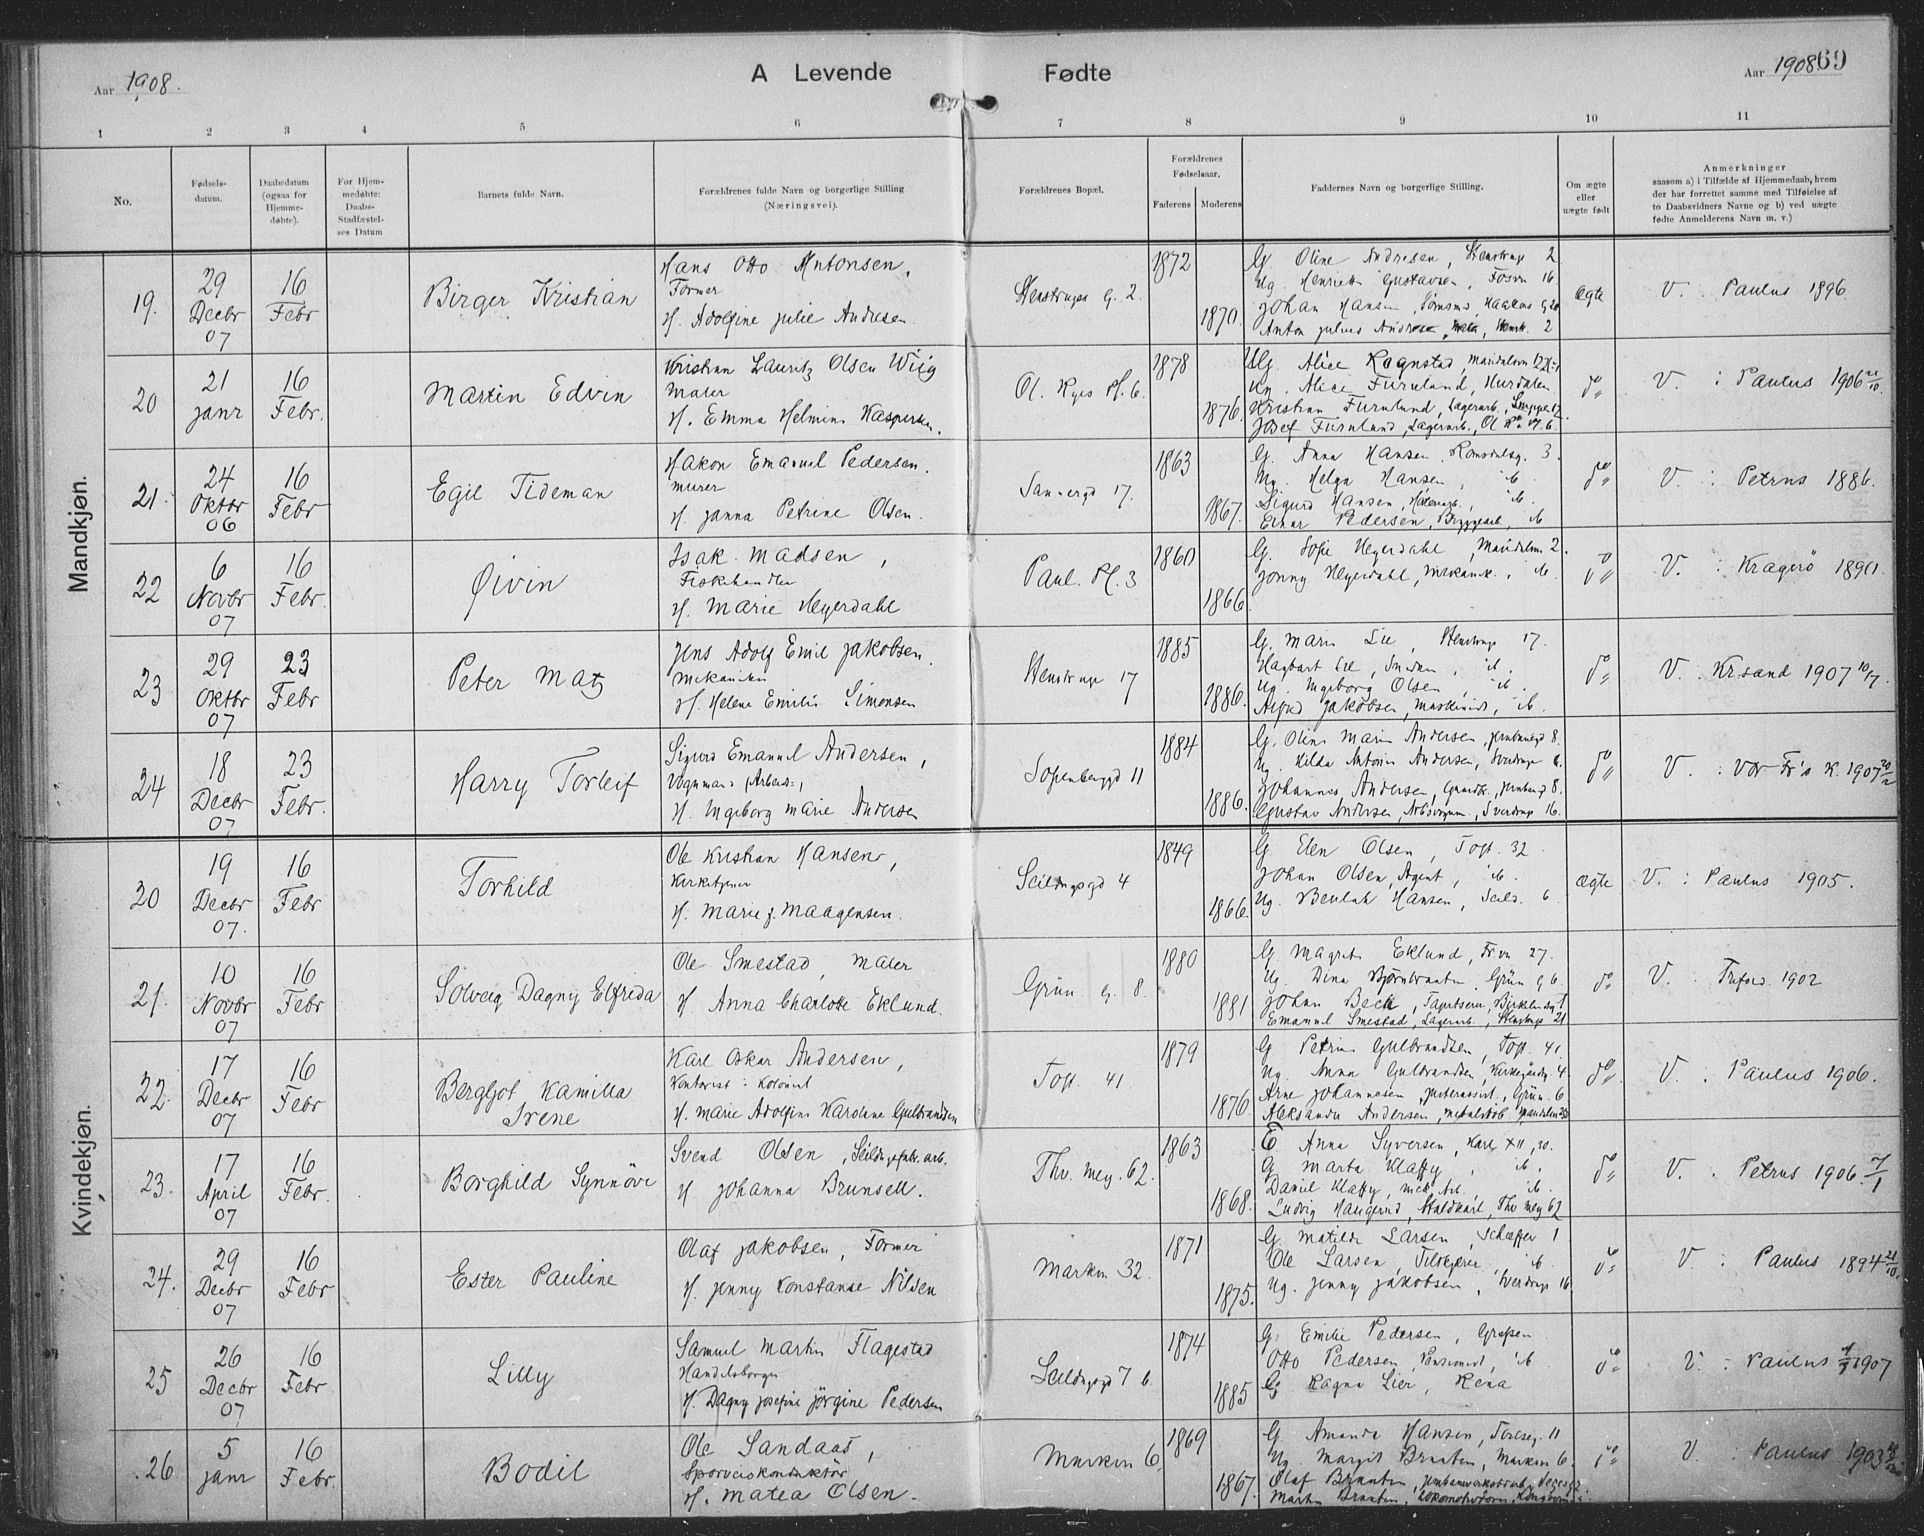 Aar 1908.
A Levende Fødte
Aar 1908
69
1 2 3 4 5 6 7 8 9 10 11
No.
Fødsels-
datum.
Daabsdatum
(ogsaa for
Hjemme-
døbte).
For Hjem-
medøbte:
Daabs-
Stadfæstel-
ses Datum
Barnets fulde Navn.
Forældrenes fulde Navn og borgerlige Stilling
(Næringsvei).
Forældrenes Bopæl.
Forældrenes
Fødselsaar.
Faderens Moderens
Faddernes Navn og borgerlige Stilling.
Om ægte
eller
uægte født
Anmerkninger
saasom a) i Tilfælde af Hjemmedaab, hvem
der har forrettet samme med Tilføielse af
to Daabsvidners Navne og b) ved uægte
fødte Anmelderens Navn m. v.)
Mandkjøn.
19.
29
Decbr
07
16
Febr
Birger Kristian
Hans Otto Antonsen,
Former
H. Adolfine Julie Andresen
Stenstrupsg. 2.
1872
1870.
G. Oline Andresen, Stenstrup 2
Ug. Henriette Gustavsen, Fossv 16.
Johan Hansen
Anton Julius
ægte
V. Paulus 1896
20
21
janr
16
Febr.
Martin Edvin
Kristian Lauritz Olsen Wiig
Maler
H. Emma Helmine Kaspersen.
Ol. Ryes Pl. 6.
1878
1876.
Ug. Alice Rognstad,
Alice Furulund, Hurdalen
Kristian Furulund, Lagerarb.,
Josef Furulund, Lagerarb.,
do
V. : Paulus 1906 21/10.
21.
24
Oktbr
06
16
Febr
Egil Tideman
Hakon Emanuel Pedersen.
Murer
H. Janna Petrine Olsen.
Sannergd 17.
1863
1867.
G. Anna Hansen. Romsdalsg. 3.
Ug. Helga Hansen, ib.
Sigurd Hansen, ib.
Einar Pedersen, Bryggearb., ib
do
V. : Petrus 1886.
22
6
Novbr
07
16
Febr.
Øivin
Isak Madsen,
Fiskehandler
H. Marie Heyerdahl
Paul. Pl. 3
1860
1866.
G. Sofie Heyerdahl, Maridalsvn 2.
Jonny Heyerdahl, Mekanik., ib.
do
V. : Kragerö 1890.
23
29
Oktbr
07
23
Febr
Peter Matz
Jens Adolf Emil Jakobsen.
Mekaniker
H. Helene Emilie Simonsen
Stenstrupg 17
1885
1886.
G. Marie Lie, Stenstrupg 17.
Hagbart Lie, ib.
Ug. Ingeborg Olsen, ib.
Alfred Jakobsen, Maskinist, ib.
do
V. : Kr.sand 1907 10/17.
24
18
Decbr
07
23
Febr.
Harry Torleif
Sigurd Emanuel Andersen,
Vognmands Arbeider,
H. Ingeborg Marie Andersen
Sofienberggd 11
1884
1886.
G. Oline Marie Andersen, 8.
Ug. Hilda Antonie Andersen, Sverdrups 6.
Johannes Andersen, 8.
Gustav Andersen, Sverdrup 16.
do
V. : Vor Fr's K. 1907 20/2
Kvindekjøn.
20
19
Decbr
07.
16
Febr
Torhild
Ole Kristian Hansen,
Kirketjener
H. Marie J. Maagensen.
Seildugsgd 4
1849
1866.
G. Elen Olsen, Toft. 32.
Johan Olsen, Agent, ib.
Ug. Beulah Hansen, Seild. 6.
ægte
V. : Paulus 1905.
21.
10
Novbr
07
16
Febr
Solveig Dagny Elfreda
Ole Smestad, Maler
H. Anna Charlotte Eklund.
Grün. g. 8.
1880
1881
G. Magrete Eklund, 27.
Ug. Dina Bjørnbraaten, Grün g 6
Johan Beck, Tapetserer,
Emanuel Smestad, Lagerarb., Stenstrupg 21
do
V. : Trefold. 1902
22.
17
Decbr
07
16
Febr
Bergljot Kamilla
Irene
Karl Oskar Andersen,
Kontorist : Kolonial
H. Marie Adolfine Karoline Gulbrandsen
Toft. 41.
1879
1876.
G. Petrine Gulbrandsen, Toft. 41.
Ug. Anna Gulbrandsen, Kirkegårdsg. 4.
Arne Johannesen, Grün. 6
Aleksander Andersen,
do
V. : Paulus 1906.
23.
17
April
07
16
Febr.
Borghild Synnöve
Svend Olsen, Seildugsfabr. arb.
H. Johanna Brunsell.
Thv. Mey. 62.
1863
1868.
E. Anna Syversen, Karl XII, 20.
G. Marta Klaffy, ib.
Daniel Klaffy, Mek Arb., ib.
Ludvig Haugerud, Staldkarl, Thv Mey 62
do
V. : Petrus 1906. 7/1
24.
29
Decbr
07
16
Febr
Ester Pauline
Olaf Jakobsen, Former
H. Jenny Konstanse Nilsen
Markvn 32.
1871
1875.
G. Matilde Larsen, Schæffer 1
Ole Larsen, Tilskjærer, ib.
Ug. Jenny Jakobsen, Sverdrup 16
do
V. : Paulus 1894 21/10.
25
26
Decbr
07
16
Febr.
Lilly
Samuel Martin Flagestad
Handelsborger
H. Dagny Josefine Jörgine Pedersen
Seildugsgd 7 b.
1874
1885
G. Emilie Pedersen, Grefsen.
Otto Pedersen, Pensionist, ib
G. Ragna Lier, Rena
do
V. : Paulus 1907
.26
5
janr
16
Febr.
Bodil
Ole Sandaas,
Sporveiskonduktör
H. Matea Olsen.
Markvn 6.
1869
1867.
G. Amanda Hansen, 11
Ug. Margit Braaten, Markvn 6.
Olaf Braaten,
Martin Braaten,
do
V. : Paulus 1903